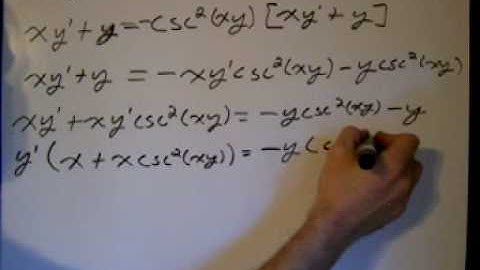 xy' + y = -csc²(xy) [xy' + y]
xy' + y = -xy'csc²(xy) - ycsc²(xy)
xy' + xy'csc²(xy) = -ycsc²(xy) - y
y'(x + xcsc²(xy)) = -y(c